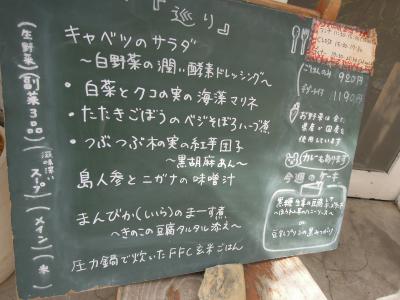 『巡り』
キャベツのサラダ
～白野菜の潤い酵素ドレッシング～
・白菜とクコの実の海藻マリネ
・たたきごぼうのベジそぼろハーブ煮
・つぶつぶ木の実の紅芋団子
～黒胡麻あん～
島人参とニガナの味噌汁
まんぴか(いら)のまーす煮
～きのこの豆腐タルタル添え～
圧力鍋で炊いたFFC玄米ごはん
(生野菜)
(副菜3つ)
(滋味深いスープ)
(メイン)
(米)
980円
1190円
お野菜は全て
県産か国産を
使用しています
カレーもあります
今週のケーキ
or